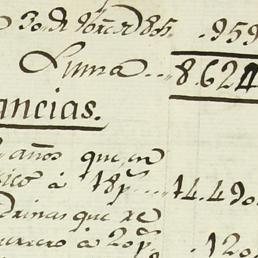 30, de 9bre de 85. .959
Suma... 8.624
ancias.
años que, en
sico á 18p..... 14.490
drinas que se
á 20p. .120